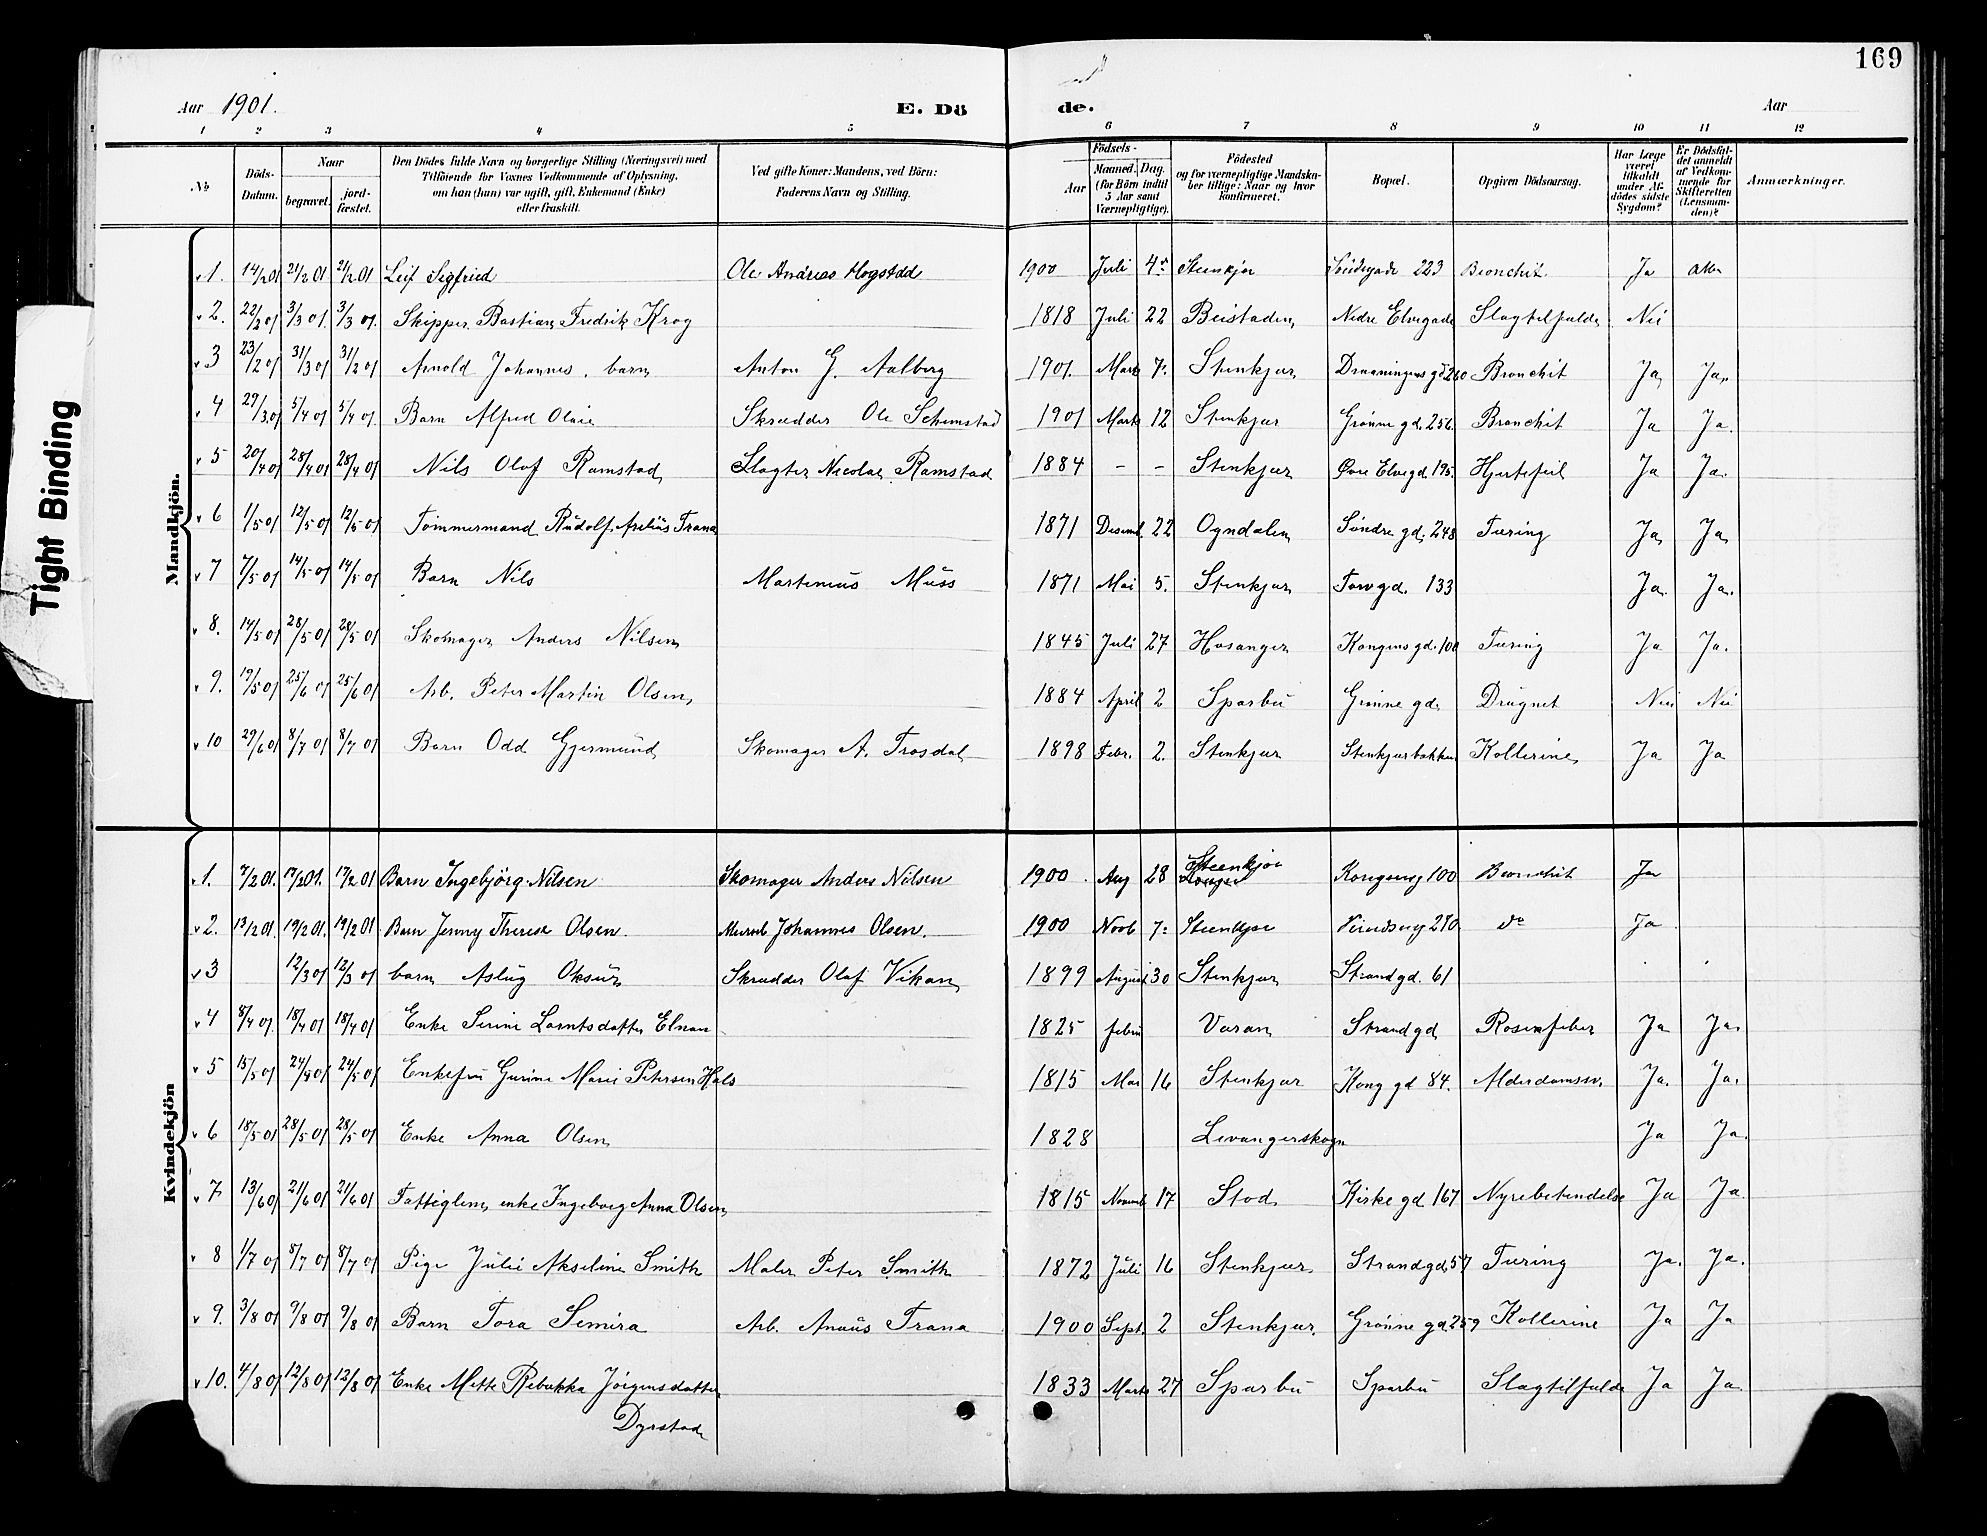 169
Aar 1901. E. Dö de. Aar
1 2 3 4 5 6 7 8 9 10 11 12
No Döds-Datum. Naar begravet. jordfæstet. Den Dödes fulde Navn og borgerlige Stilling (Næringsvei) med Tilföiende for Voxnes Vedkommende af Oplysning, om han (hun) var ugift, gift, Enkemand (Enke) eller fraskilt. Ved gifte Koner: Mandens, ved Börn: Faderens Navn og Stilling. Aar Födsels- Maaned. Dag. (for Börn indtil 5 Aar samt Værnepligtige). Födested og for værnepligtige Mandskaber tillige: Naar og hvor konfirmeret. Bopæl. Opgiven Dödsaarsag. Har Læge været tilkaldt under Afdödes sidste Sygdom? Er Dödsfaldet anmeldt af Vedkommende for Skifteretten (Lensmanden)? Anmærkninger.
Tight Binding
Mandkjön.
1. 14/2 01 21/2 01 21/2 01 Leif Sigfried Ole Andreas Hogstad 1900 Juli 4 Steenkjær 223 Bronchit Ja
2. 22/2 01 3/3 01. 3/3 01. Skipper Bastian Fredrik Krog 1818 Juli 22 Beistaden Nedre Elvegade Slagtilfælde Nei
3 23/2 01 31/3 01 31/2 01 Arnold Johannes, barn Anton G. Aalberg 1901. Marts 7. Stenkjær gd 260 Bronchit Ja Ja
4 29/3 01 5/4 01 5/4 01. Barn Alfred Olaie Skrædder Ole Schemstad 1901 Marts 12 Stenkjær Grønne gd. 256. Bronchit Ja Ja.
5 20/4 01 28/4 01 28/4 01 Nils Olaf Ramstad Slagter Nicolai Ramstad 1884 - - Stenkjær Øvre Elvegd. 195. Hjertefeil Ja Ja.
6 1/5 01 12/5 01 12/5 01 Tømmermand Rudolf Trana 1871 Desemb. 22 Ogndalen Søndre gd. 248 Tæring Ja Ja
7 7/5 01 14/5 01 14/5 01 Barn Nils Martenius Muss 1871 Mai 5. Stenkjær Torvgd. 133 Ja. Ja.
8. 14/5 01 28/5 01 28/5 01 Skomager Anders Nilsen 1845 Juli 27 Hosanger Kongens gd. 100 Tæring Ja Ja.
9. 19/5 01 25/6 01 25/6 01 Arb. Peter Martin Olsen 1884 April 2 Sparbu Grønne gd. Druknet Nei Nei
10 29/6 01 8/7 01 8/7 01 Barn Odd Gjermund Skomager A. Trosdal 1898 Febr. 2. Stenkjær Stenkjærbakken Kollerine Ja Ja
Kvindekjön
1. 7/2 01. 17/2 01. 17/2 01 Barn Ingebjörg Nilsen Skomager Anders Nilsen 1900. Aug 28 Steenkjær Kongensg 100 Bronchit Ja
2. 13/2 01. 19/2 01. 19/2 01 Barn Jenny Therese Olsen. Johannes Olsen. 1900 Novb 7. Steenkjær 280 do Ja
3 12/3 01 12/3 01 barn Aslug Oksur Skrædder Olaf Vikan 1899 August 30 Stenkjær Strandgd. 61
4 8/4 01. 18/4 01 18/4 01 Enke Serine Lorntsdatter Elnan 1825 febru Væran Strandgd Rosenfeber Ja Ja.
5 15/5 01 24/5 01 24/5 01 Enkefru Gurine Marie Petersen Hals 1815 Mai 16 Stenkjær Kong gd 84. Alderdomssv. Ja. Ja.
6 18/5 01 28/5 01 28/5 01 Enke Anna Olsen 1828 Levangerskogn Ja Ja.
7 13/6 01 21/6 01 21/6 01 Fattiglem, enke Ingeborg Anna Olsen 1815 Novemb 17 Stod Kirke gd 167 Nyrebetendelse Ja Ja
8 1/7 01 8/7 01 8/7 01 Pige Julie Akseline Smith Maler Peter Smith 1872 Juli 16 Stenkjær Strandgd. 57 Tæring Ja. Ja.
9. 3/8 01 9/8 01 9/8 01 Barn Tora Semira Arb. Anæus Trana 1900 Sept. 2 Stenkjær. Grønne gd. 259 Kollerine Ja Ja
10. 4/8 01 12/8 01 12/8 01 Enke Mette Rebekka Jörgensdatter 1833 Marts 27 Sparbu Sparbu Slagtilfælde Ja Ja
Dyrstad